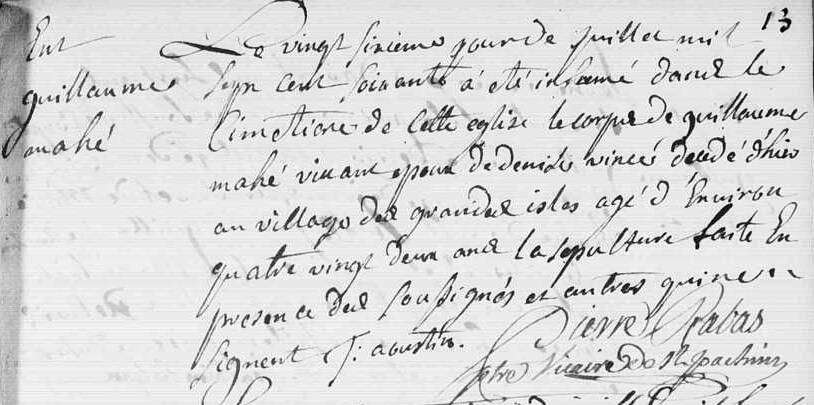 13
Ent
guillaume
mahé
Le vingt sixieme jour de juillet mil
sept cent soixante a été inhumé dans le
cimetiere de cette eglise le corps de guillaume
mahé vivant epoux de denise vincé decedé d'hier
au village des grandes isles agé d'Environ
quatre vingt deux ans la sepulture faite En
presence des soussignés et autres qui ne
signent
Pierre
vicaire de St joachim